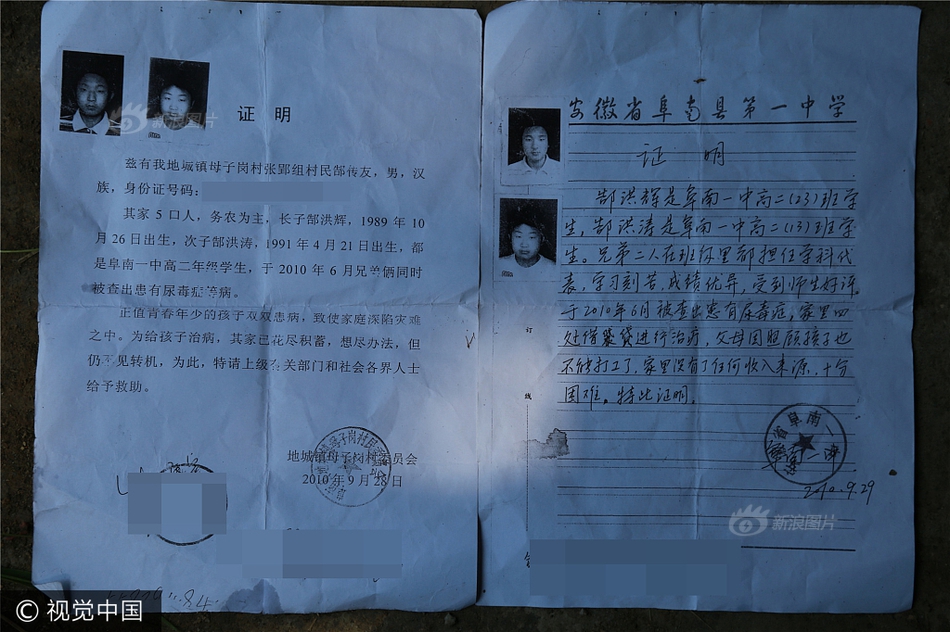 证 明
兹有我地城镇母子岗村张郢组村民郜传友，男，汉
族，身份证号码：
其家 5 口人，务农为主，长子郜洪辉，1989 年 10
月 26 日出生，次子郜洪涛，1991 年 4 月 21 日出生，都
是阜南一中高二年级学生，于 2010 年 6 月兄弟俩同时
被查出患有尿毒症等病。
正值青春年少的孩子双双患病，致使家庭深陷灾难
之中。为给孩子治病，其家已花尽积蓄，想尽办法，但
仍不见转机，为此，特请上级有关部门和社会各界人士
给予救助。
地城镇母子岗村委员会
2010 年 9 月 28 日
安徽省阜南县第一中学
证 明
郜洪辉是阜南一中高二(23)班学
生，郜洪涛是阜南一中高二(13)班学
生。兄弟二人在班级里都担任学科代
表，学习刻苦，成绩优异，受到师生好评。
于2010年6月被查出患有尿毒症，家里四
处借鬃贷进行治疗，父母因照顾孩子也
不能打工了，家里没有了任何收入来源，十分
困难。特此证明。
订
线
省阜南一
2010.9.29
新浪图片
新浪图片
© 视觉中国